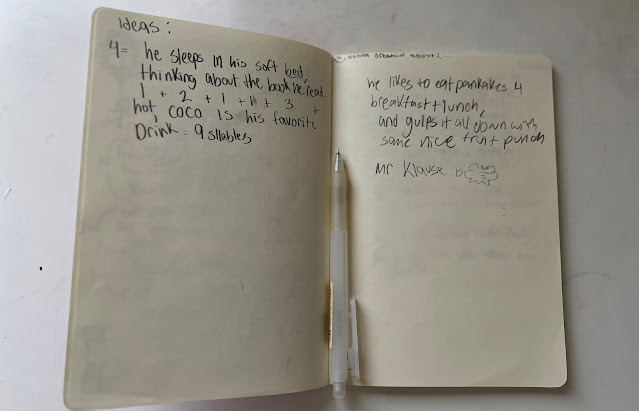 Ideas:
4= he sleeps in his soft bed,
thinking about the book he read.
1 + 2 + 1 + 1 + 3 +
hot, coco is his favorite
Drink = 9 sllables
dreamin about...
he likes to eat pankakes 4
breakfast + lunch,
and gulps it all down with
some nice fruit punch
Mr Klause